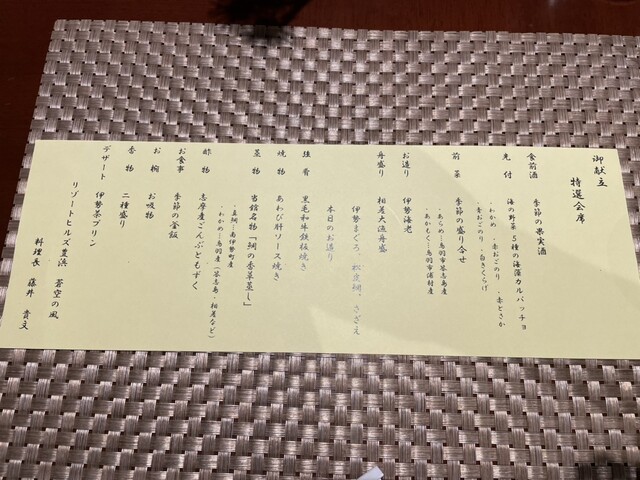 御献立
特選会席
食前酒　季節の果実酒
先付　海の野菜　5種の海藻カルパッチョ
・わかめ　・赤おごのり　・赤とさか
・青おごのり　・白きくらげ
前菜　季節の盛り合せ
・あらめ…鳥羽市答志島産
・あかもく…鳥羽市浦村産
お造り　伊勢海老
舟盛り　相差大漁舟盛
本日のお造り
伊勢まぐろ、松皮鯛、さざえ
強肴　黒毛和牛鉄板焼き
焼物　あわび肝ソース焼き
蒸物　当館名物「鯛の香草蒸し」
・真鯛…南伊勢町産
・わかめ…鳥羽産（答志島・相差など）
酢物　志摩産ごんぶともずく
お食事　季節の釜飯
お椀　お吸物
香物　二種盛り
デザート　伊勢茶プリン
リゾートヒルズ豊浜　蒼空の風
料理長　藤井　貴文